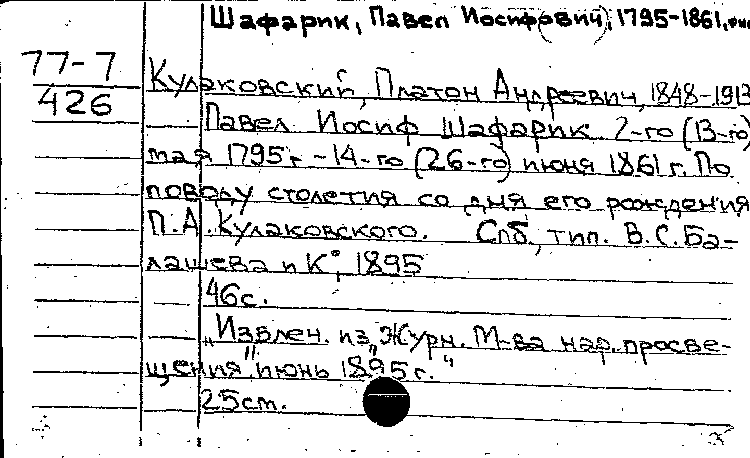 Шафарик, Павел Иосиф(ович), 1795-1861,
77-7
426
Кулаковский, Платон Андреевич, 1848-1913
Павел Иосиф Шафарик 2-го (13-го)
мая 1795 г. - 14-го (26-го) июня 1861 г. По
поводу столетия со дня его рождения
П.А.Кулаковского. Спб, тип. В.С.Ба-
лашева и К°, 1895
46 с.
„Извлеч. из „Журн. М-ва нар. просве-
щения" июнь 1895 г."
25 cm.